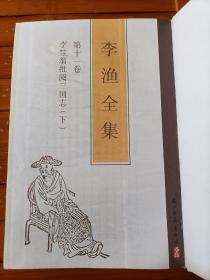 李渔全集
第十一卷
李笠翁批阅三国志（下）